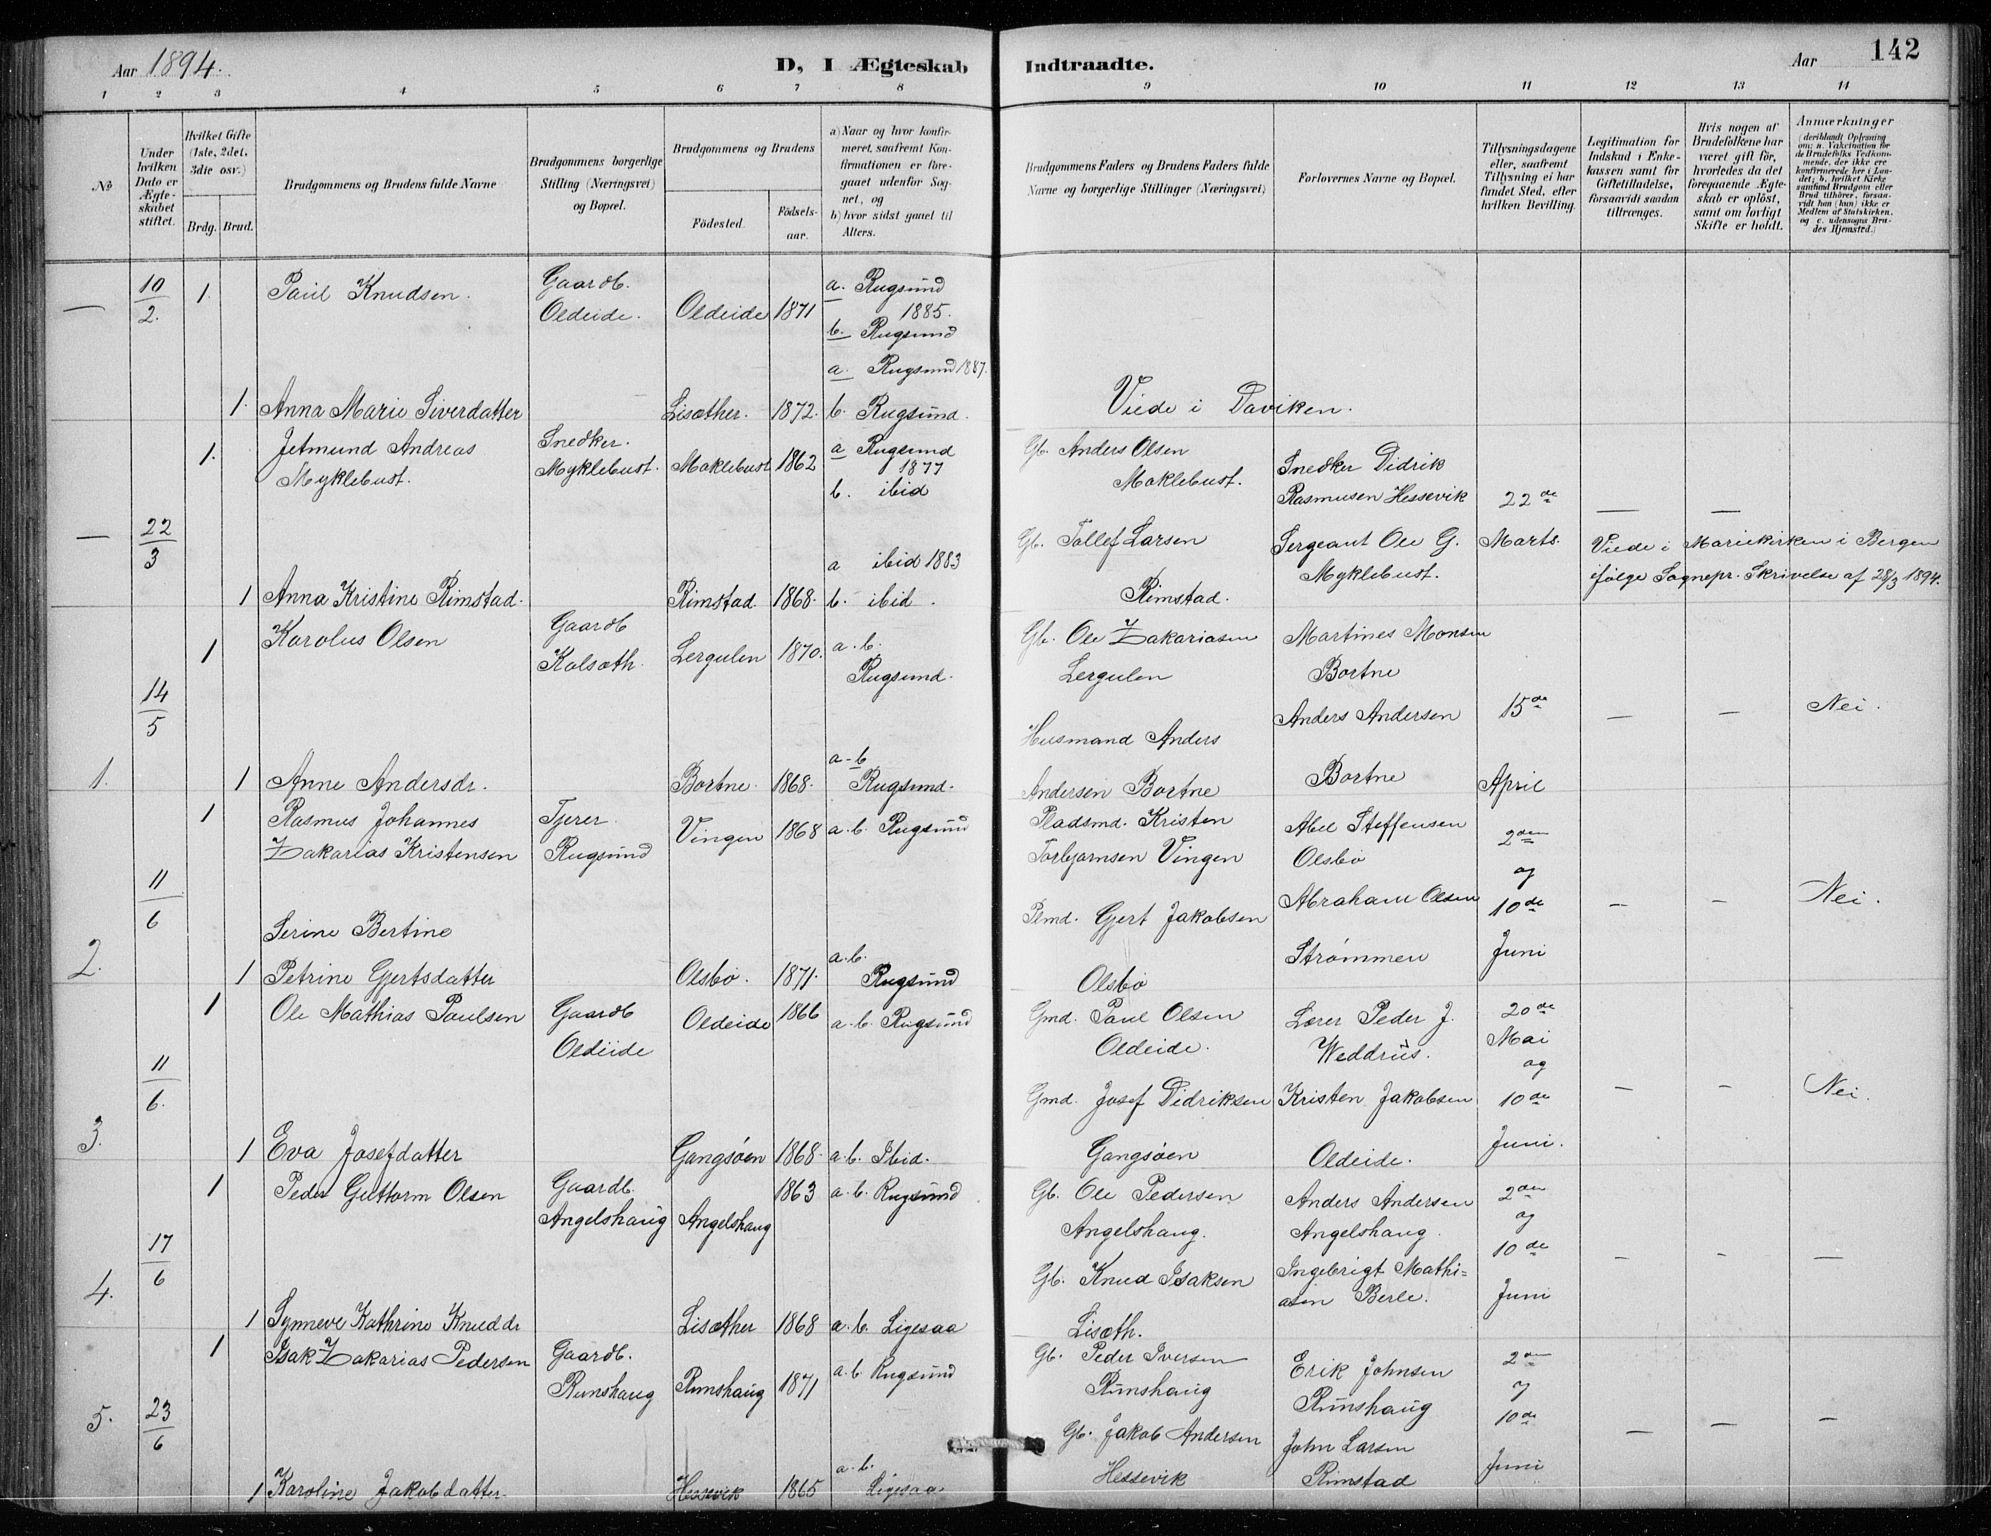 Aar 1894.
D, I Ægteskab Indtraadte.
Aar
142
1 2 3 4 5 6 7 8 9 10 11 12 13 14
No
Under hvilken Dato er Ægteskabet stiftet.
Hvilket Gifte (1ste, 2det, 3die osv.)
Brdg. Brud.
Brudgommens og Brudens fulde Navne
Brudgommens borgerlige Stilling (Næringsvei) og Bopæl.
Brudgommens og Brudens
Födested.
Födselsaar.
a) Naar og hvor konfirmeret, saafremt Konfirmationen er foregaaet udenfor Sognet, og
b) hvor sidst gaaet til Alters.
Brudgommens Faders og Brudens Faders fulde Navne og borgerlige Stillinger (Næringsvei)
Forlovernes Navne og Bopæl.
Tillysningsdagene eller, saafremt Tillysning ei har fundet Sted, efter hvilken Bevilling.
Legitimation for Indskud i Enkekassen samt for Giftetilladelse, forsaavidt saadan tiltrænges.
Hvis nogen af Brudefolkene har været gift för, hvorledes da det foregaaende Ægteskab er oplöst, samt om lovligt Skifte er holdt.
Anmærkninger
(deriblandt Oplysning om: a. Vakcination for de Brudefolks Vedkommende, der ikke ere konfirmerede her i Landet; b. hvilket Kirkesamfund Brudgom eller Brud tilhörer, forsaavidt han (hun) ikke er Medlem af Statskirken, og c. udensogns Brudes Hjemsted.)
— 10/2. 1. Paul Knudsen. Gaardb. Oldeide. Oldeide 1871 a. Rugsund 1885. b. Rugsund
1. Anna Marie Siverdatter Lisæther. 1872. a. Rugsund 1887. b. Rugsund. Viede i Daviken.
— 22/3 1. Jetmund Andreas Myklebust. Snedker. Myklebust. Moklebust 1862 a Rugsund 1877 b. ibid Gb. Anders Olsen Moklebust. Snedker Didrik Rasmusen Hessevik 22de Marts. — —
1 Anna Kristine Rimstad. Rimstad 1868. a ibid 1883 b. ibid. Gb. Tollef Larsen Rimstad. Sergeant Ole G. Myklebust. Viede i Mariekirken i Bergen ifølge Sognepr. Skrivelse af 28/3 1894.
1. 14/5 1 Karolus Olsen Gaardb Kalsæth. Lergulen 1870. a. b. Rugsund. Gb. Ole Zakariasen Lergulen Martines Monsen Bortne 15de April — — Nei.
1 Anne Andersdr. Bortne. 1868. a-b Rugsund. Husmand Anders Andersen Bortne Anders Andersen Bortne
2. 11/6 1 Rasmus Johannes Zakarias Kristensen Tjener. Rugsund Vingen 1868 a. b. Rugsund Pladsmd. Kristen Torbjørnsen Vingen Abel Steffensen Olsbø 2den og 10de Juni — — Nei.
1 Serine Bertine Petrine Gjertsdatter Olsbø. 1871. a. b. Rugsund Plmd. Gjert Jakobsen Olsbø Abraham Olsen Strømmen
3. 11/6. 1 Ole Mathias Paulsen Gaardb Oldeide Oldeide 1866 a. b. Rugsund Gmd. Paul Olsen Oldeide. Lærer Peder J. 20de Mai og 10de Juni. — — Nei.
1 Eva Josefdatter Gangsøen 1868. a. b. Ibid. Gmd. Josef Didriksen Gangsøen Kristen Jakobsen Oldeide.
4. 17/6 1 Peder Guttorm Olsen Gaardb. Angelshaug Angelshaug 1863 a. b. Rugsund Gb. Ole Pedersen Angelshaug. Anders Andersen Angelshaug 2den og 10de Juni — — —
1 Synneve Kathrine Knuddr Lisæther 1868 a. b. Ligesaa Gb. Knud Isaksen Lisæth. Ingebrigt Mathiasen Berle.
5. 23/6 1 Isak Zakarias Pedersen Gaardb. Rimshaug Rimshaug 1871 a. b. Rugsund Gb. Peder Iversen Rimshaug Erik Johnsen Rimshaug 2den 10de Juni — — —
1 Karoline Jakobdatter. Hessevik 1865 a. b. Ligesaa Gb. Jakob Andersen Hessevik John Larsen Rimstad